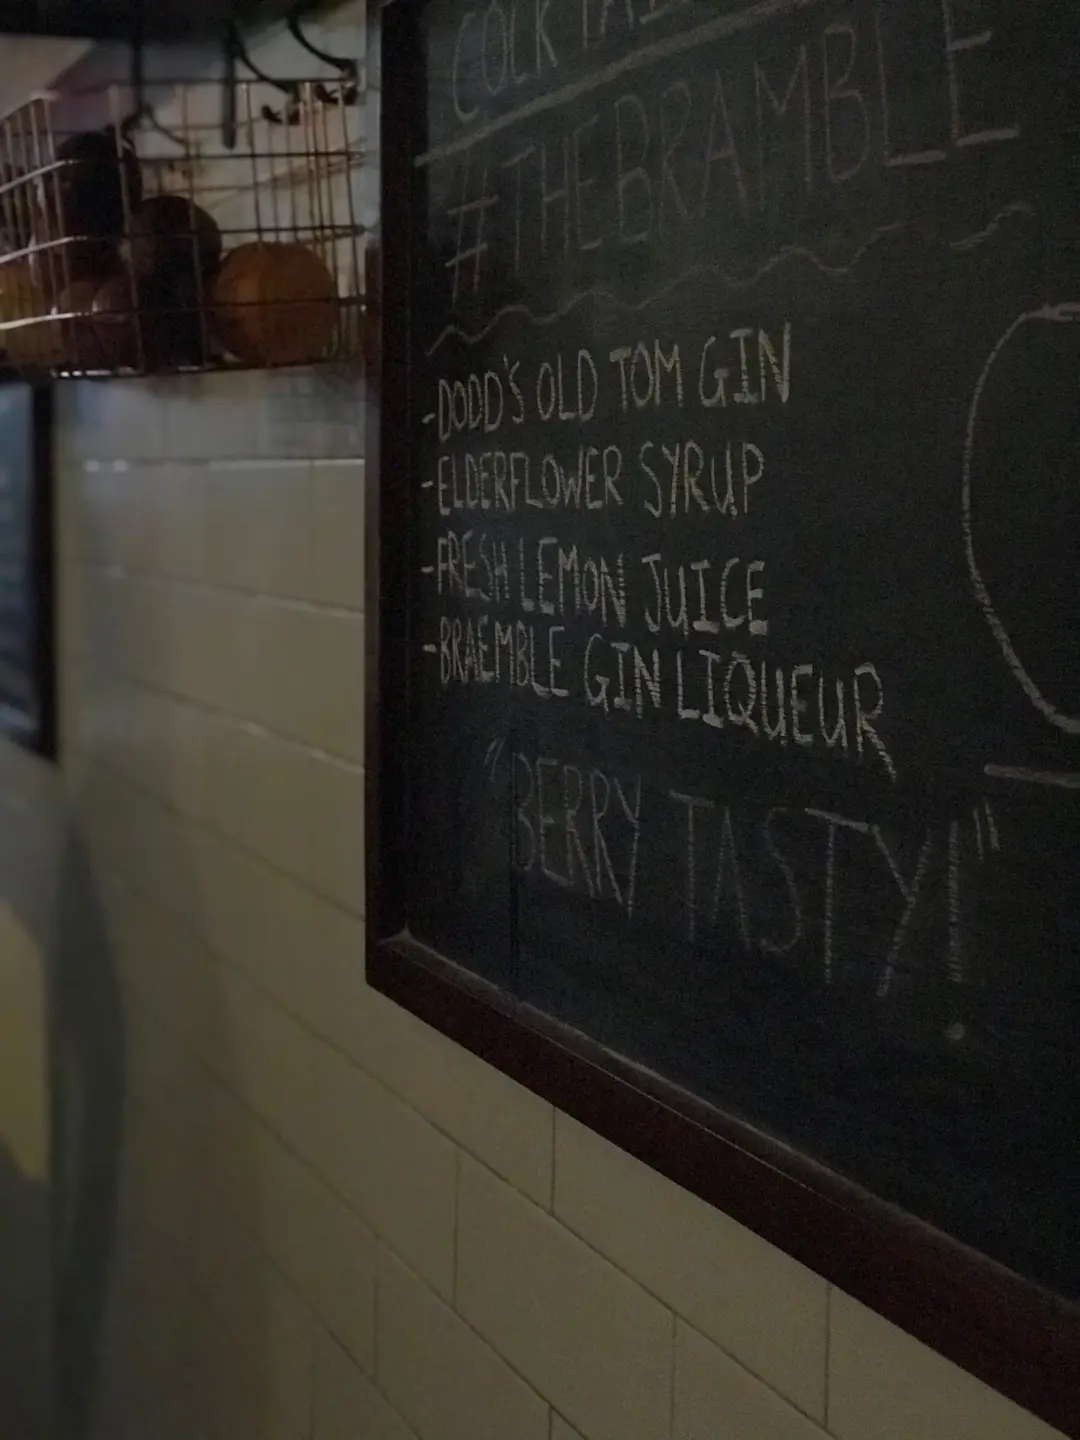 #THEBRAMBLE
-DODD'S OLD TOM GIN
-ELDERFLOWER SYRUP
-FRESH LEMON JUICE
-BRAEMBLE GIN LIQUEUR
"BERRY TASTY!"